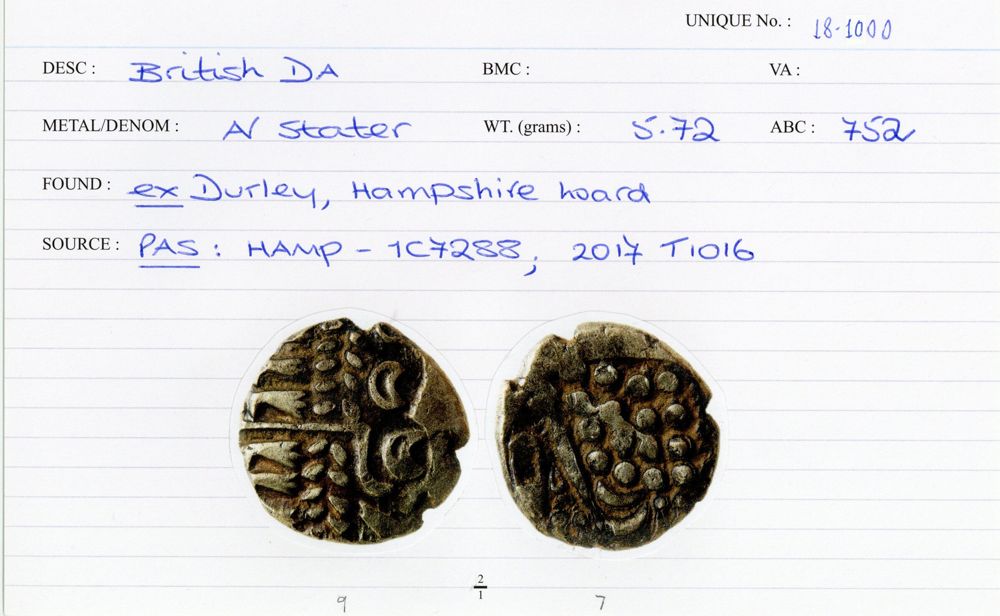 UNIQUE No. : 18-1000
DESC : British DA BMC : VA :
METAL/DENOM : A/ Stater WT. (grams) : 5.72 ABC : 752
FOUND : ex Durley, Hampshire hoard
SOURCE : PAS : HAMP - 1C7288; 2017 T1016
2/1
9 7